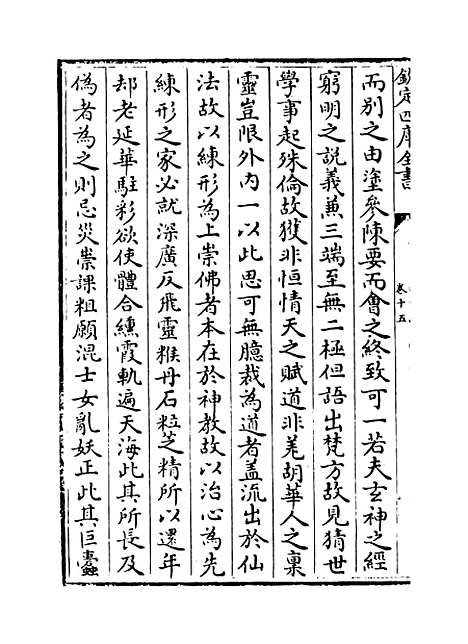 欽定四庫全書
卷十五
而別之由塗參陳要而會之終致可一若夫玄神之經
窮明之說義兼三端至無二極但語出梵方故見猜世
學事起殊倫故獲非恒情天之賦道非羌胡華人之稟
靈豈限外内一以此思可無臆裁為道者盖流出於仙
法故以練形為上崇佛者本在於神教故以治心為先
練形之家必就深廣反飛靈糇丹石粒芝精所以還年
却老延華駐彩欲使體合纁霞軌遍天海此其所長及
偽者為之則忌災祟課粗願混士女亂妖正此其巨蠹